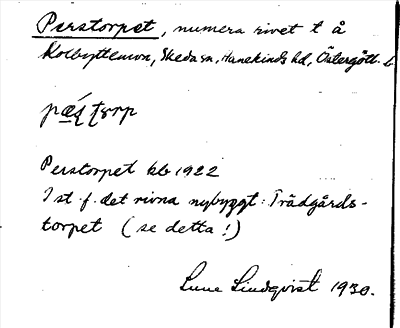 Perstorpet, numera rivet t å
Kolbyttemon, Skeda sn, Hanekinds hd, Östergötl. l.
Perstorpet kb 1922
I st. f. det rivna nybyggt: Trädgårds-
torpet (se detta!)
Sune Lindqvist 1930.